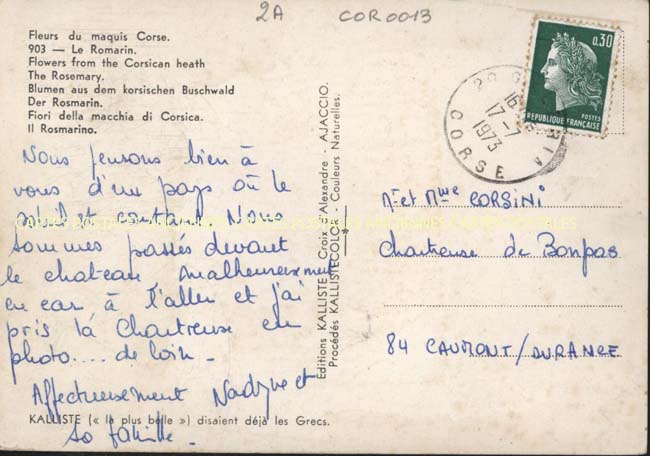 2A COR0013
Fleurs du maquis Corse.
903 — Le Romarin.
Flowers from the Corsican heath
The Rosemary.
Blumen aus dem korsischen Buschwald
Der Rosmarin.
Fiori della macchia di Corsica.
Il Rosmarino.
Nous pensons bien à
vous d'un pays où le
soleil est constant. Nous
sommes passés devant
le chateau malheureusement
en car à l'aller et j'ai
pris la Chartreuse en
photo.... de loin.
Affectueusement Nadyne et
sa famille.
KALLISTE (« la plus belle ») disaient déjà les Grecs.
Editions KALLISTE, Croix d'Alexandre - AJACCIO.
Procédés KALLISTECOLOR - Couleurs Naturelles.
0,30
POSTES
REPUBLIQUE FRANÇAISE
17-7
1973
CORSE
Mr et Mme CORSINI
Chartreuse de Bonpas
84 CAUMONT/DURANCE